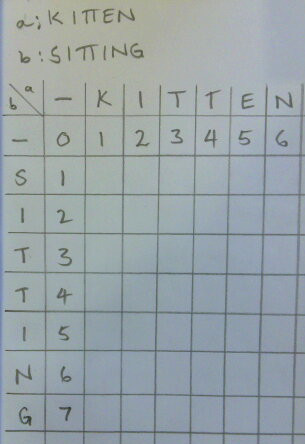 a; KITTEN
b: SITTING
b a - K I T T E N
- 0 1 2 3 4 5 6
S 1
I 2
T 3
T 4
I 5
N 6
G 7